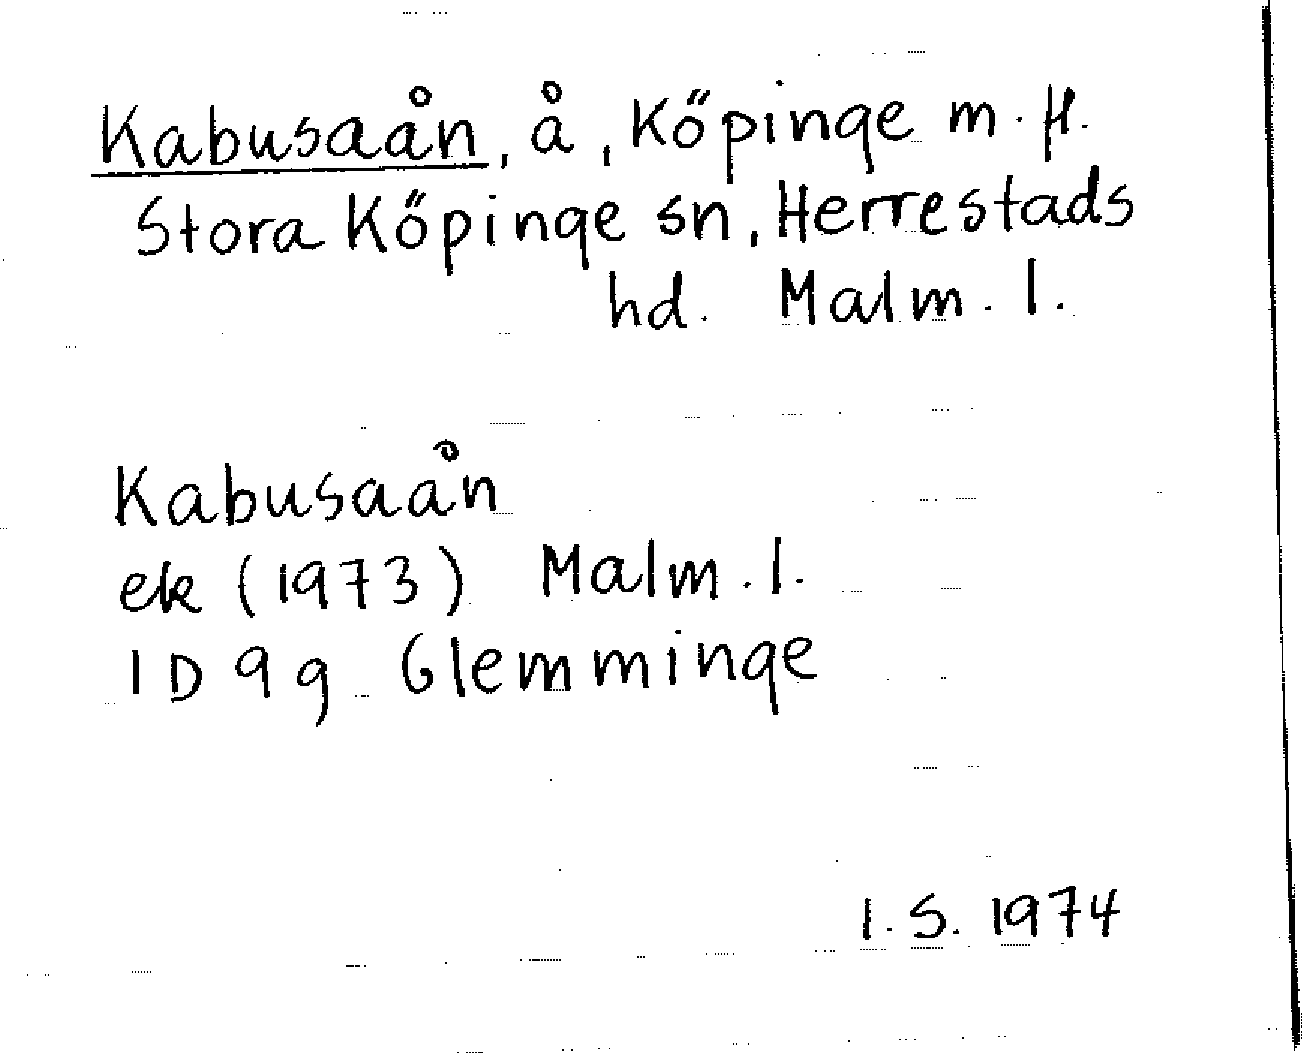 Kabusaån, å, Köpinge m. fl.
Stora Köpinge sn, Herrestads
hd. Malm. l.
Kabusaån
ek (1973) Malm. l.
1 D 9 g Glemminge
I. S. 1974